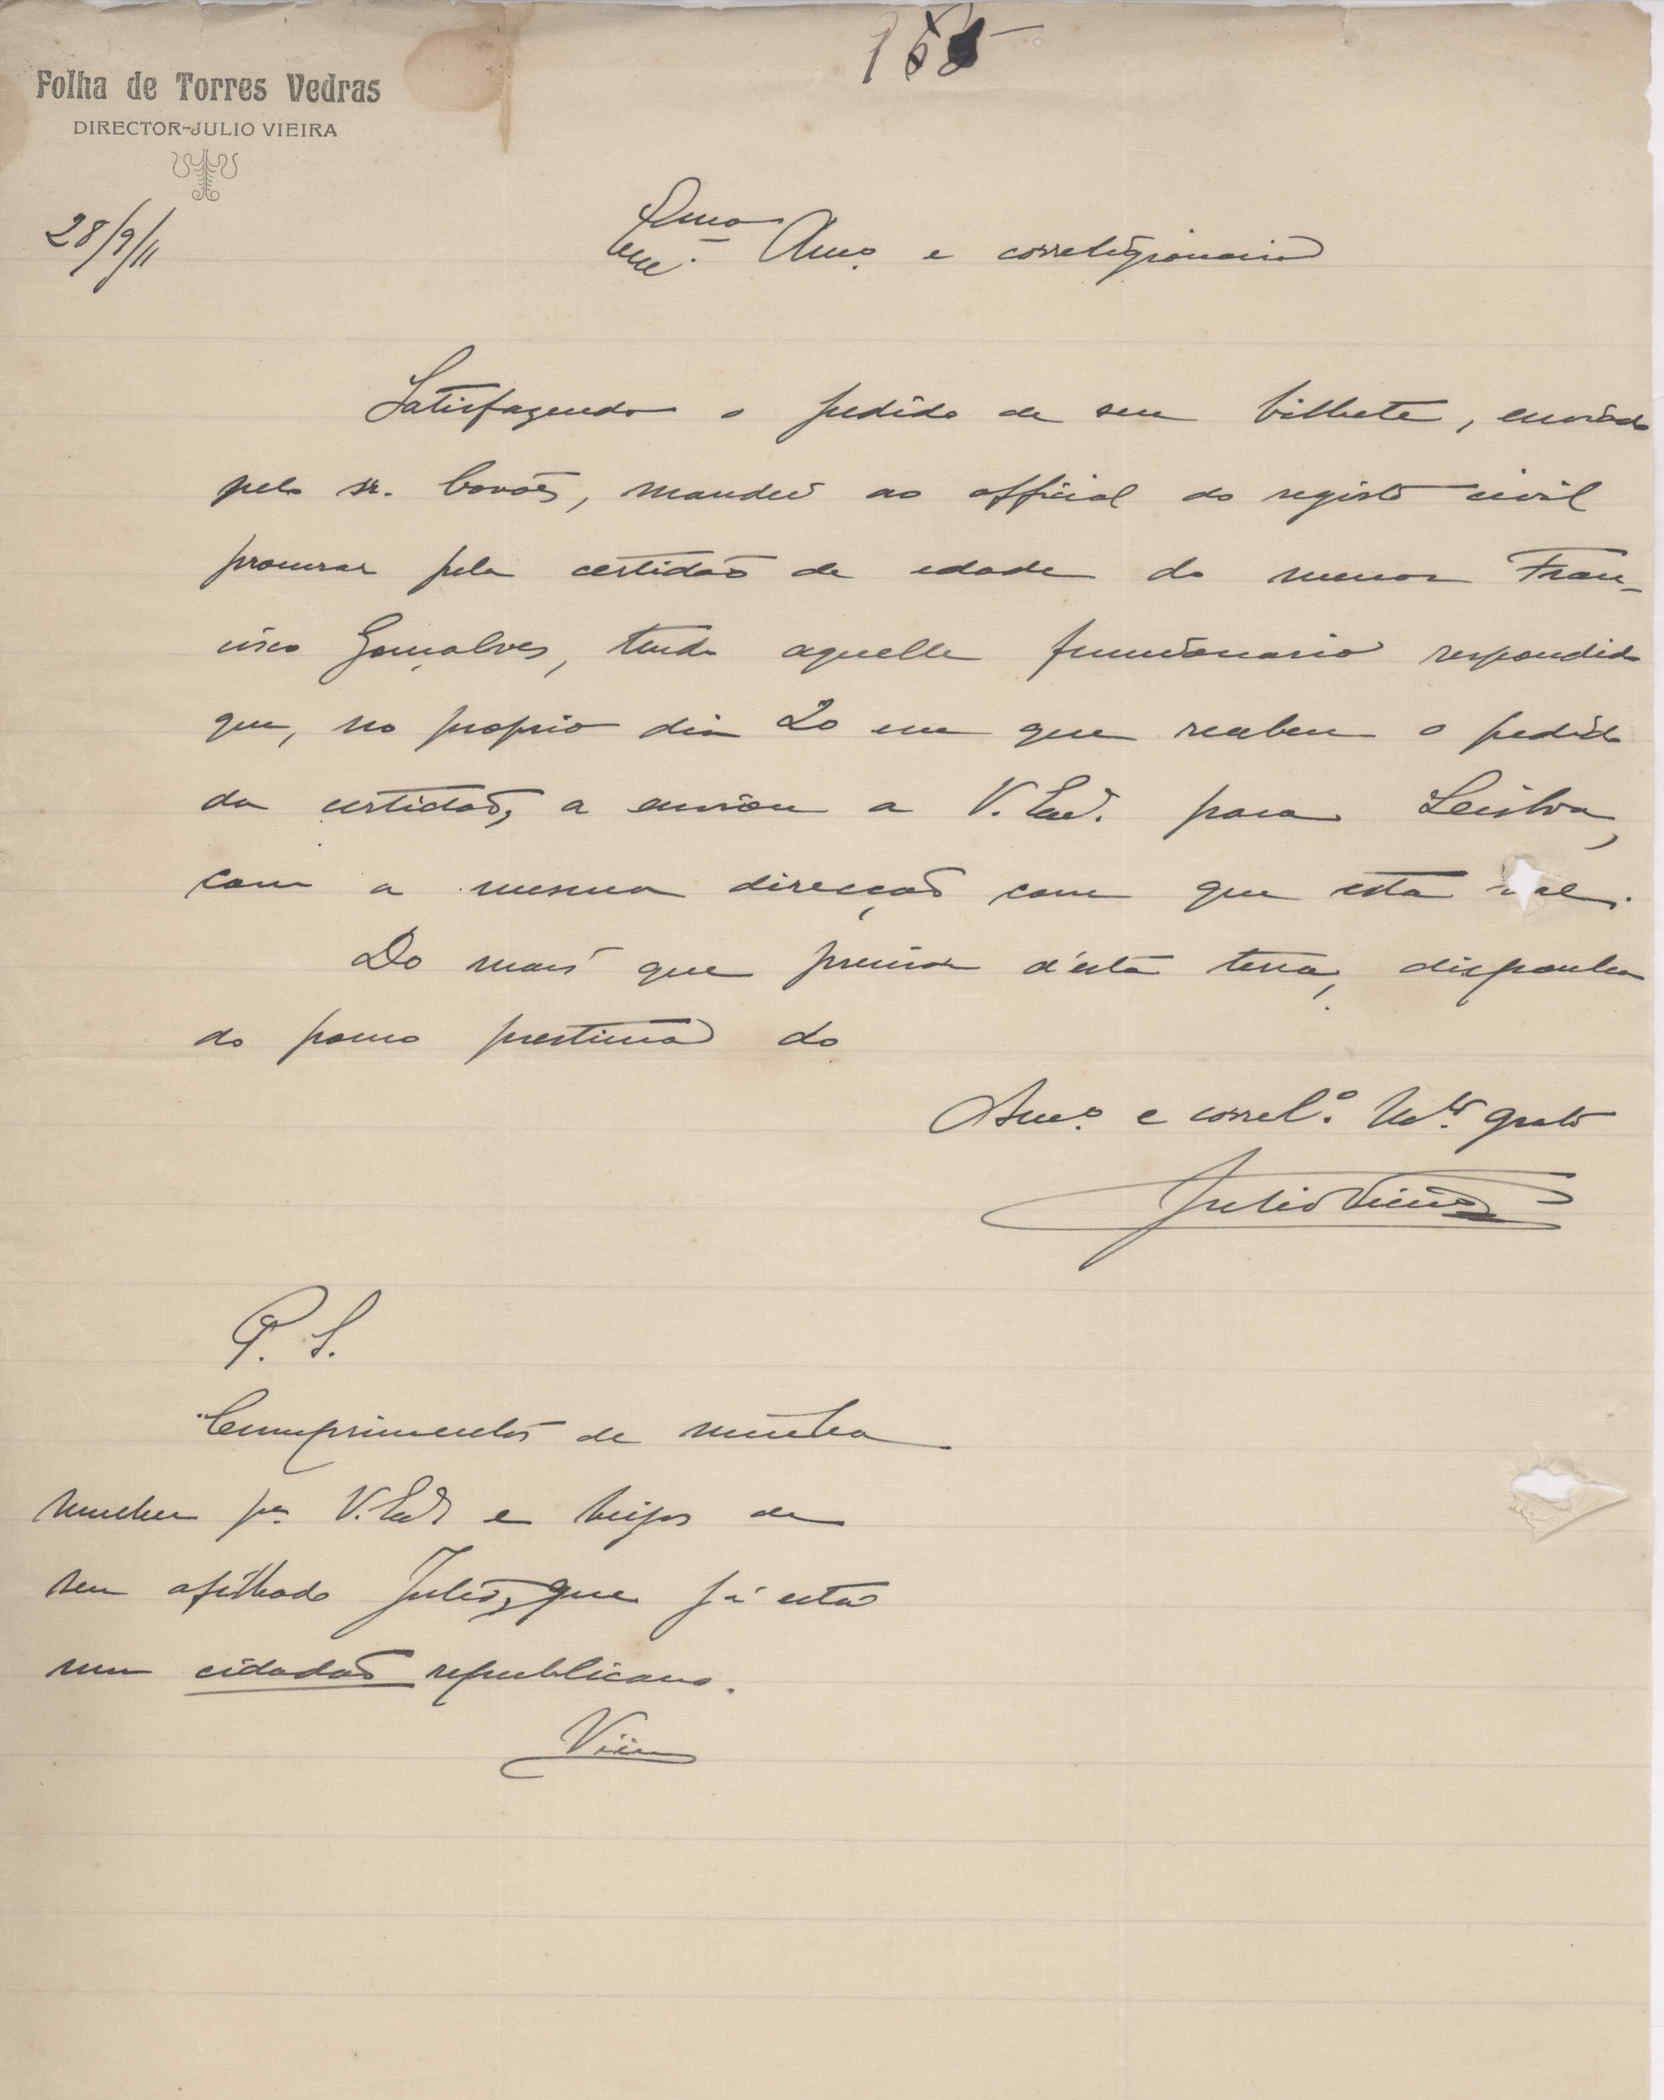 Folha de Torres Vedras
DIRECTOR-JULIO VIEIRA
28/9/11
Amº e correligionario
Satisfazendo o pedido de seu bilhete, enviado
pelo sr. Covões, mandei ao official do registo civil
procurar pela certidão de edade do menor Fran-
cisco Gonçalves, tendo aquelle funcionario respondido
que, no proprio dia 20 em que recebeu o pedido
da certidão, a enviou a V. Exª. para Lisboa,
com a mesma direcção com que esta vae.
Do mais que precisar d'esta terra, disponha
do pouco prestimo do
Amº. e correl.º Mtº. grato
Julio Vieira
P. S.
Cumprimentos de minha
mulher pª V. Exª e beijos de
seu afilhado Julio, que já está
um cidadão republicano.
Vieira